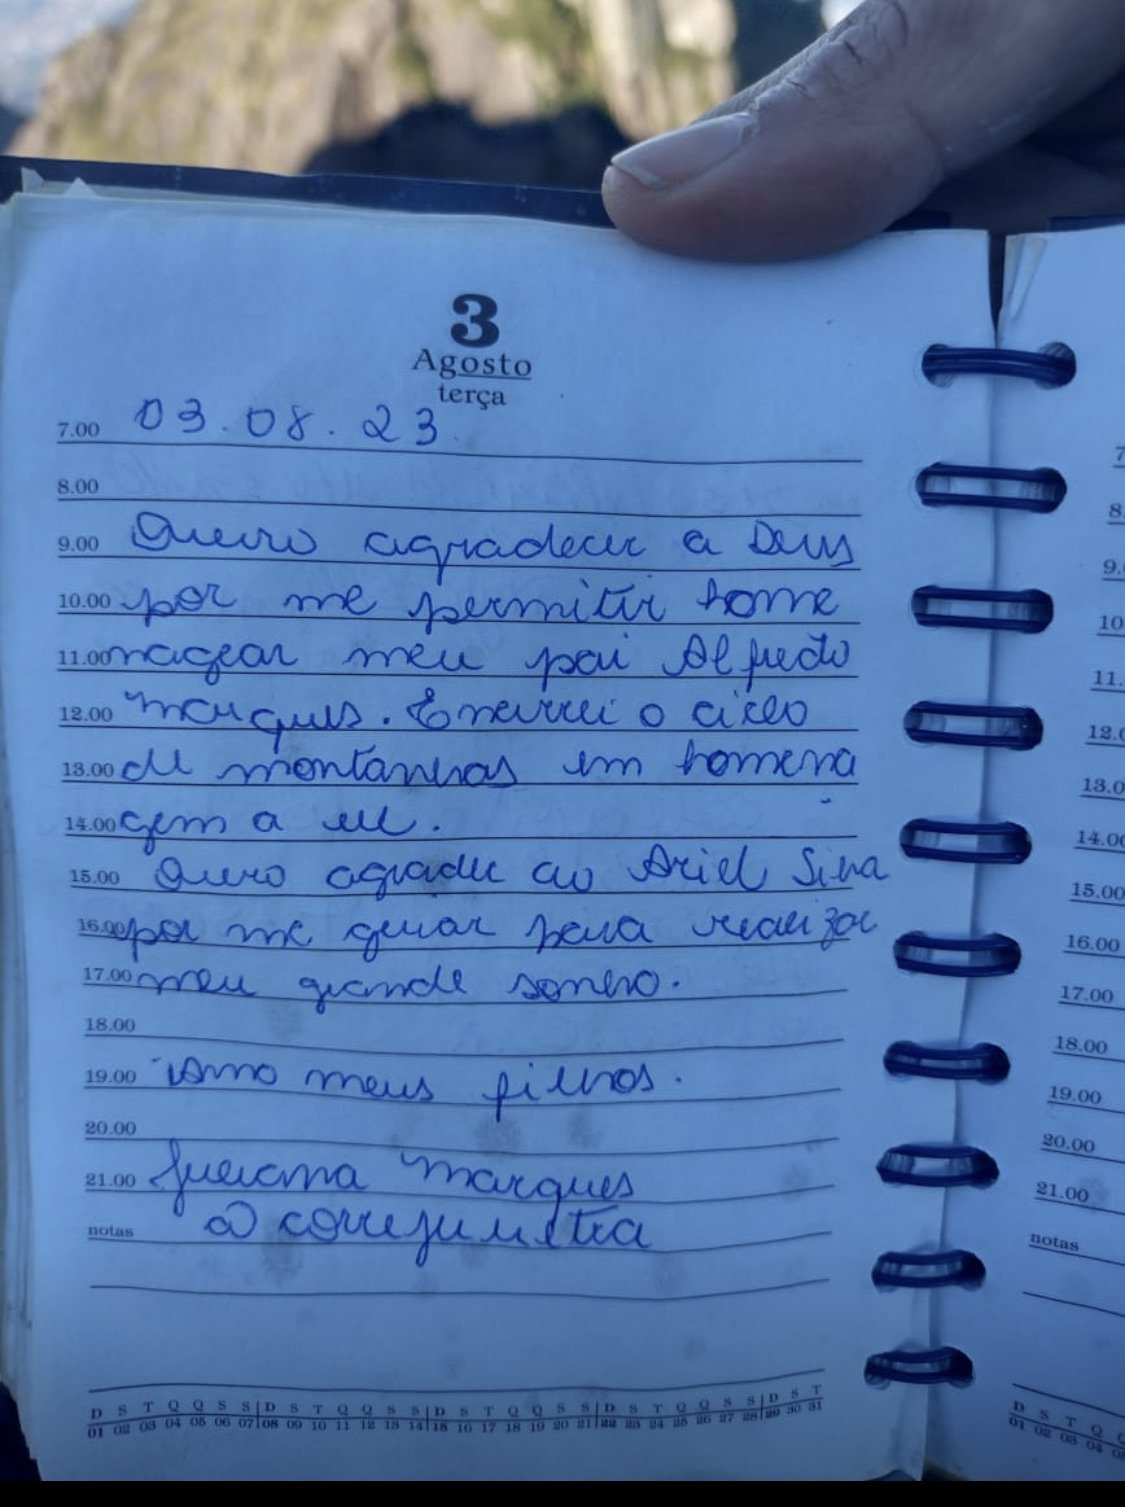 3
Agosto
terça
7.00 03.08.23
8.00
9.00 Quero agradecer a Deus
10.00 por me permitir home
11.00 nagear meu pai Alfredo
12.00 Marques. Encerrei o ciclo
13.00 de montanhas em homena
14.00 gem a ele.
15.00 Quero agradecer ao Ariel Silva
16.00 por me guiar para realizar
17.00 meu grande sonho.
18.00
19.00 Amo meus filhos.
20.00
21.00 Juliana Marques
notas @
D S T Q Q S S D S T Q Q S S D S T Q Q S S D S T Q Q S S D S T
01 02 03 04 05 06 07 08 09 10 11 12 13 14 15 16 17 18 19 20 21 22 23 24 25 26 27 28 29 30 31
7
8.
9.
10
11.
12.0
13.0
14.00
15.00
16.00
17.00
18.00
19.00
20.00
21.00
notas
D S T Q
01 02 03 04